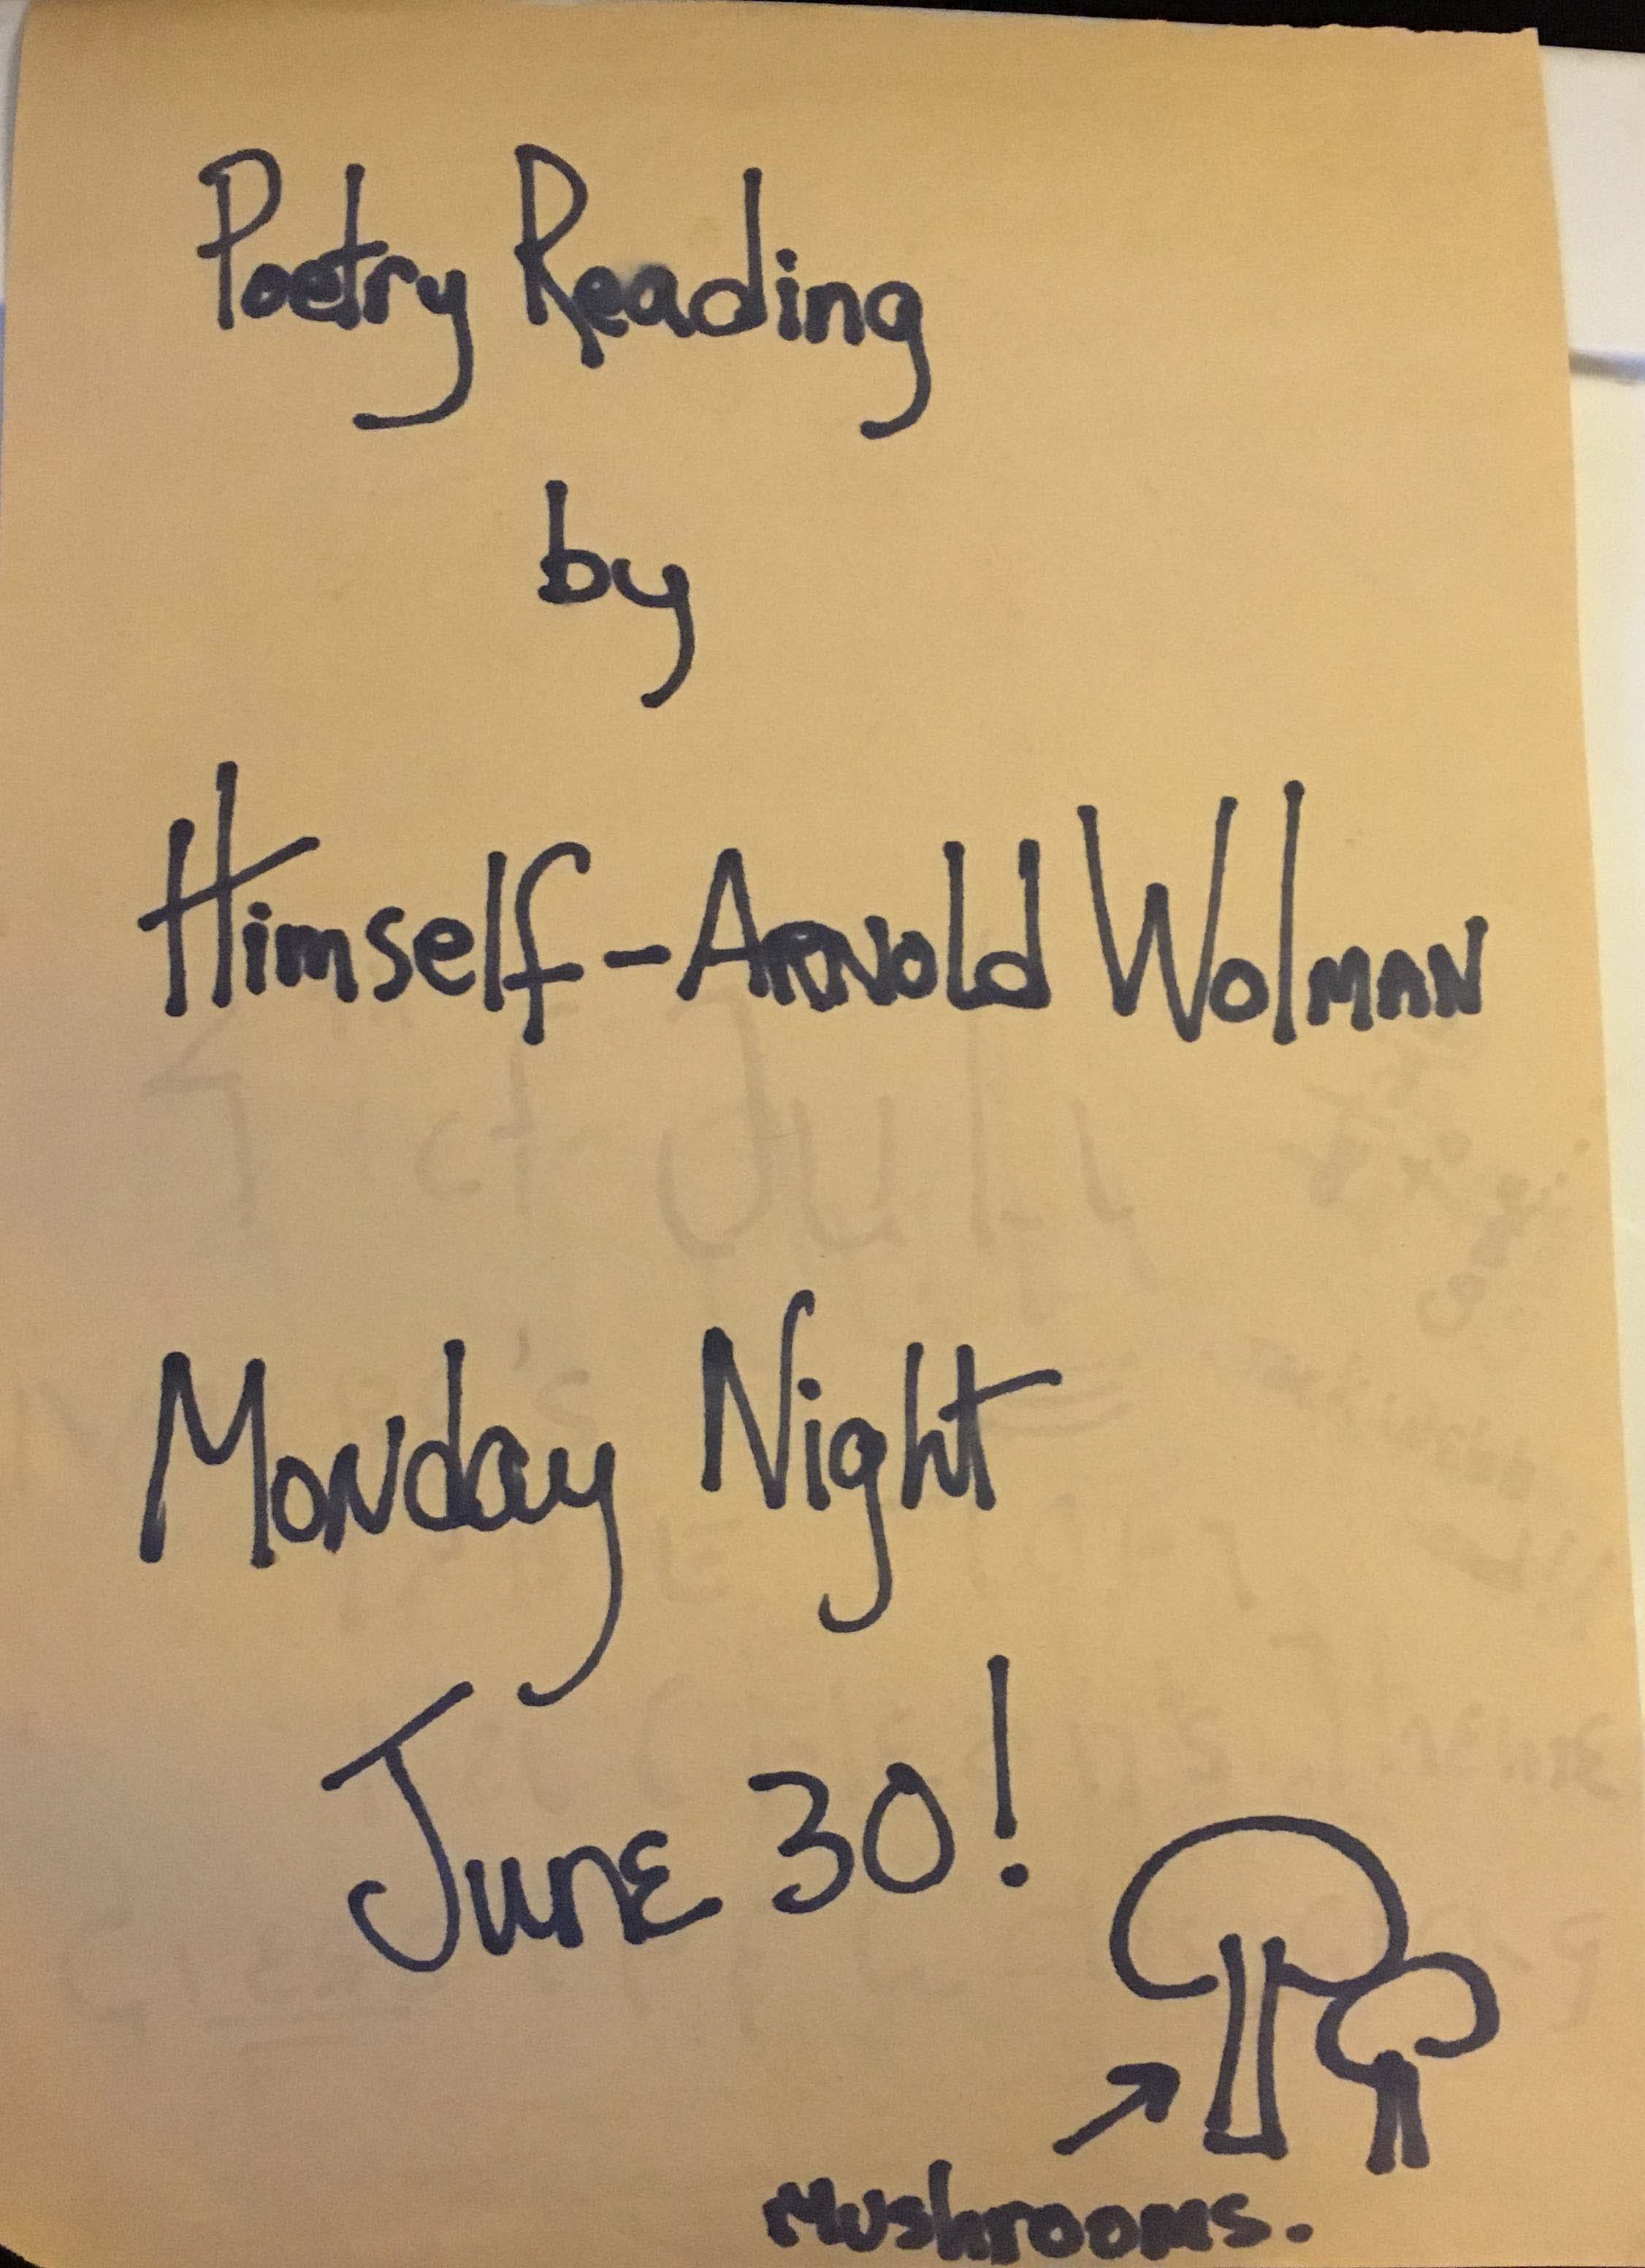 Poetry Reading
by
Himself-Arnold Wolman
Monday Night
June 30!
Mushrooms.